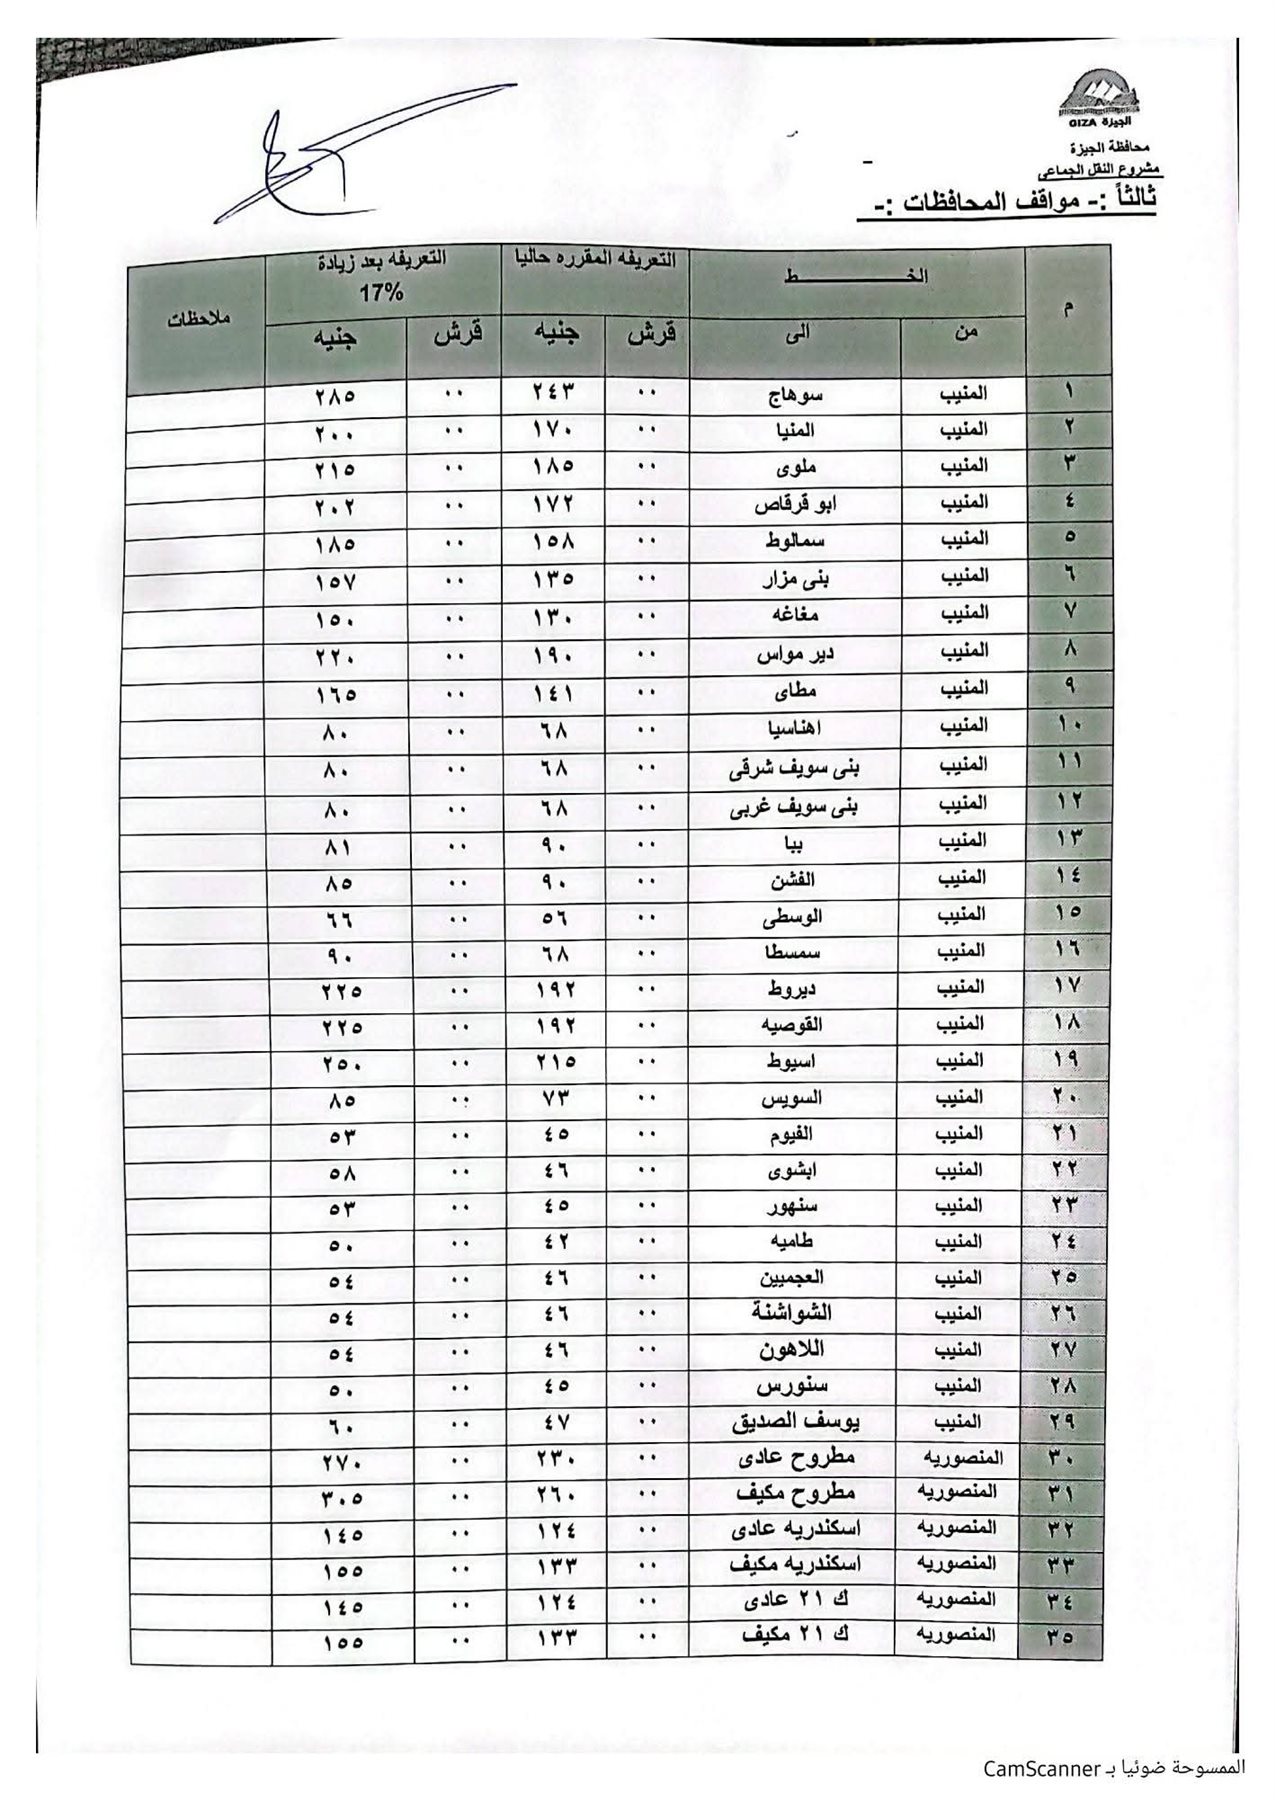 الجيزة GIZA
محافظة الجيزة
مشروع النقل الجماعى
ثالثاً :- مواقف المحافظات :-
م الخــــــــــط التعريفه المقرره حاليا التعريفه بعد زيادة 17% ملاحظات
من الى قرش جنيه قرش جنيه
١ المنيب سوهاج ٠٠ ٢٤٣ ٠٠ ٢٨٥
٢ المنيب المنيا ٠٠ ١٧٠ ٠٠ ٢٠٠
٣ المنيب ملوى ٠٠ ١٨٥ ٠٠ ٢١٥
٤ المنيب ابو قرقاص ٠٠ ١٧٢ ٠٠ ٢٠٢
٥ المنيب سمالوط ٠٠ ١٥٨ ٠٠ ١٨٥
٦ المنيب بنى مزار ٠٠ ١٣٥ ٠٠ ١٥٧
٧ المنيب مغاغه ٠٠ ١٣٠ ٠٠ ١٥٠
٨ المنيب دير مواس ٠٠ ١٩٠ ٠٠ ٢٢٠
٩ المنيب مطاى ٠٠ ١٤١ ٠٠ ١٦٥
١٠ المنيب اهناسيا ٠٠ ٦٨ ٠٠ ٨٠
١١ المنيب بنى سويف شرقى ٠٠ ٦٨ ٠٠ ٨٠
١٢ المنيب بنى سويف غربى ٠٠ ٦٨ ٠٠ ٨٠
١٣ المنيب ببا ٠٠ ٩٠ ٠٠ ٨١
١٤ المنيب الفشن ٠٠ ٩٠ ٠٠ ٨٥
١٥ المنيب الوسطى ٠٠ ٥٦ ٠٠ ٦٦
١٦ المنيب سمسطا ٠٠ ٦٨ ٠٠ ٩٠
١٧ المنيب ديروط ٠٠ ١٩٢ ٠٠ ٢٢٥
١٨ المنيب القوصيه ٠٠ ١٩٢ ٠٠ ٢٢٥
١٩ المنيب اسيوط ٠٠ ٢١٥ ٠٠ ٢٥٠
٢٠ المنيب السويس ٠٠ ٧٣ ٠٠ ٨٥
٢١ المنيب الفيوم ٠٠ ٤٥ ٠٠ ٥٣
٢٢ المنيب ابشوى ٠٠ ٤٦ ٠٠ ٥٨
٢٣ المنيب سنهور ٠٠ ٤٥ ٠٠ ٥٣
٢٤ المنيب طاميه ٠٠ ٤٢ ٠٠ ٥٠
٢٥ المنيب العجميين ٠٠ ٤٦ ٠٠ ٥٤
٢٦ المنيب الشواشنة ٠٠ ٤٦ ٠٠ ٥٤
٢٧ المنيب اللاهون ٠٠ ٤٦ ٠٠ ٥٤
٢٨ المنيب سنورس ٠٠ ٤٥ ٠٠ ٥٠
٢٩ المنيب يوسف الصديق ٠٠ ٤٧ ٠٠ ٦٠
٣٠ المنصوريه مطروح عادى ٠٠ ٢٣٠ ٠٠ ٢٧٠
٣١ المنصوريه مطروح مكيف ٠٠ ٢٦٠ ٠٠ ٣٠٥
٣٢ المنصوريه اسكندريه عادى ٠٠ ١٢٤ ٠٠ ١٤٥
٣٣ المنصوريه اسكندريه مكيف ٠٠ ١٣٣ ٠٠ ١٥٥
٣٤ المنصوريه ك ٢١ عادى ٠٠ ١٢٤ ٠٠ ١٤٥
٣٥ المنصوريه ك ٢١ مكيف ٠٠ ١٣٣ ٠٠ ١٥٥
الممسوحة ضوئيا بـ CamScanner